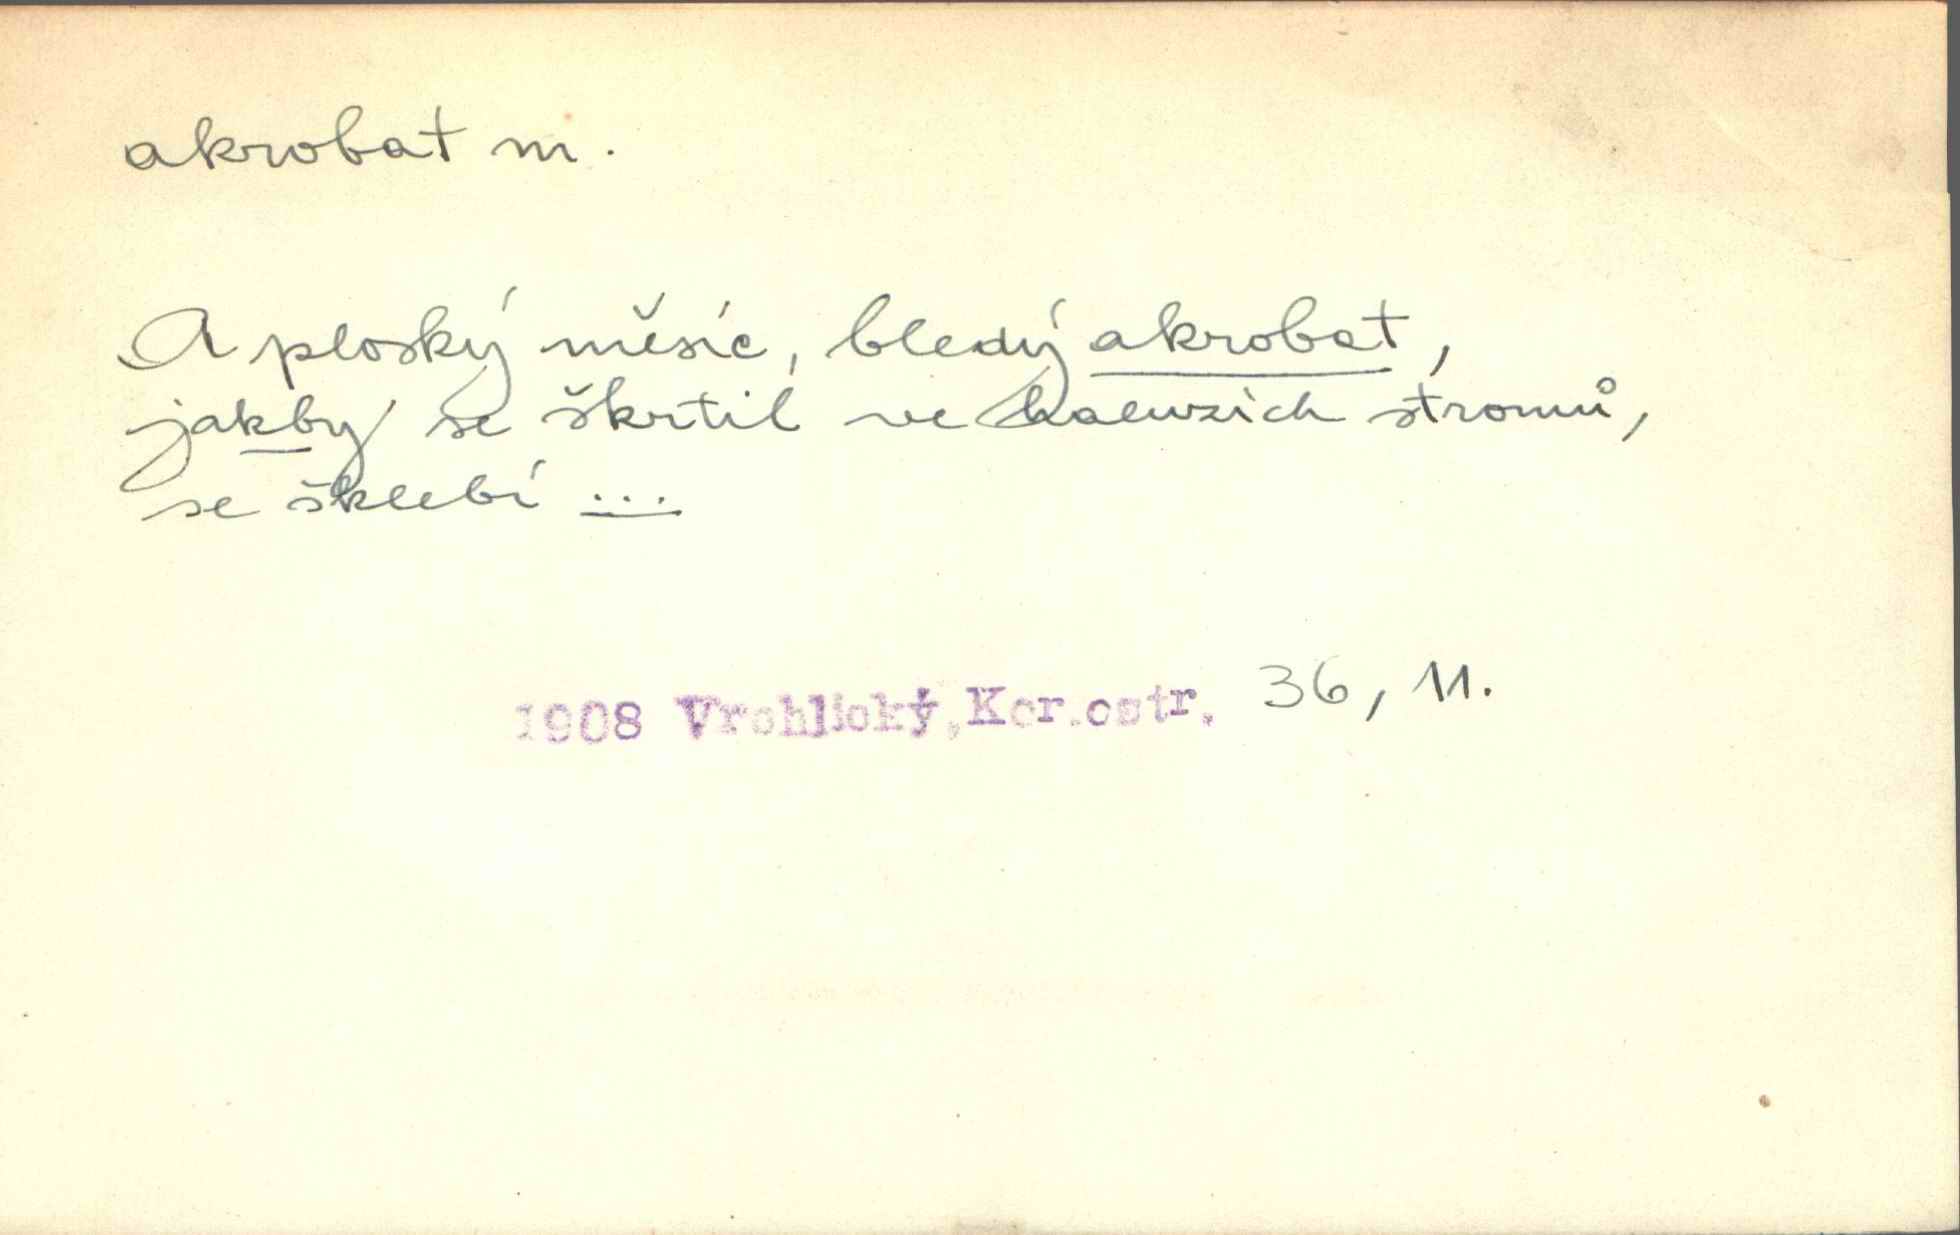 akrobat m.
A ploský měsíc, bledý akrobat,
jakby se škrtil ve haluzích stromů,
se šklebí ...
1908 Vrchlický, Kor.ostr. 36, 11.